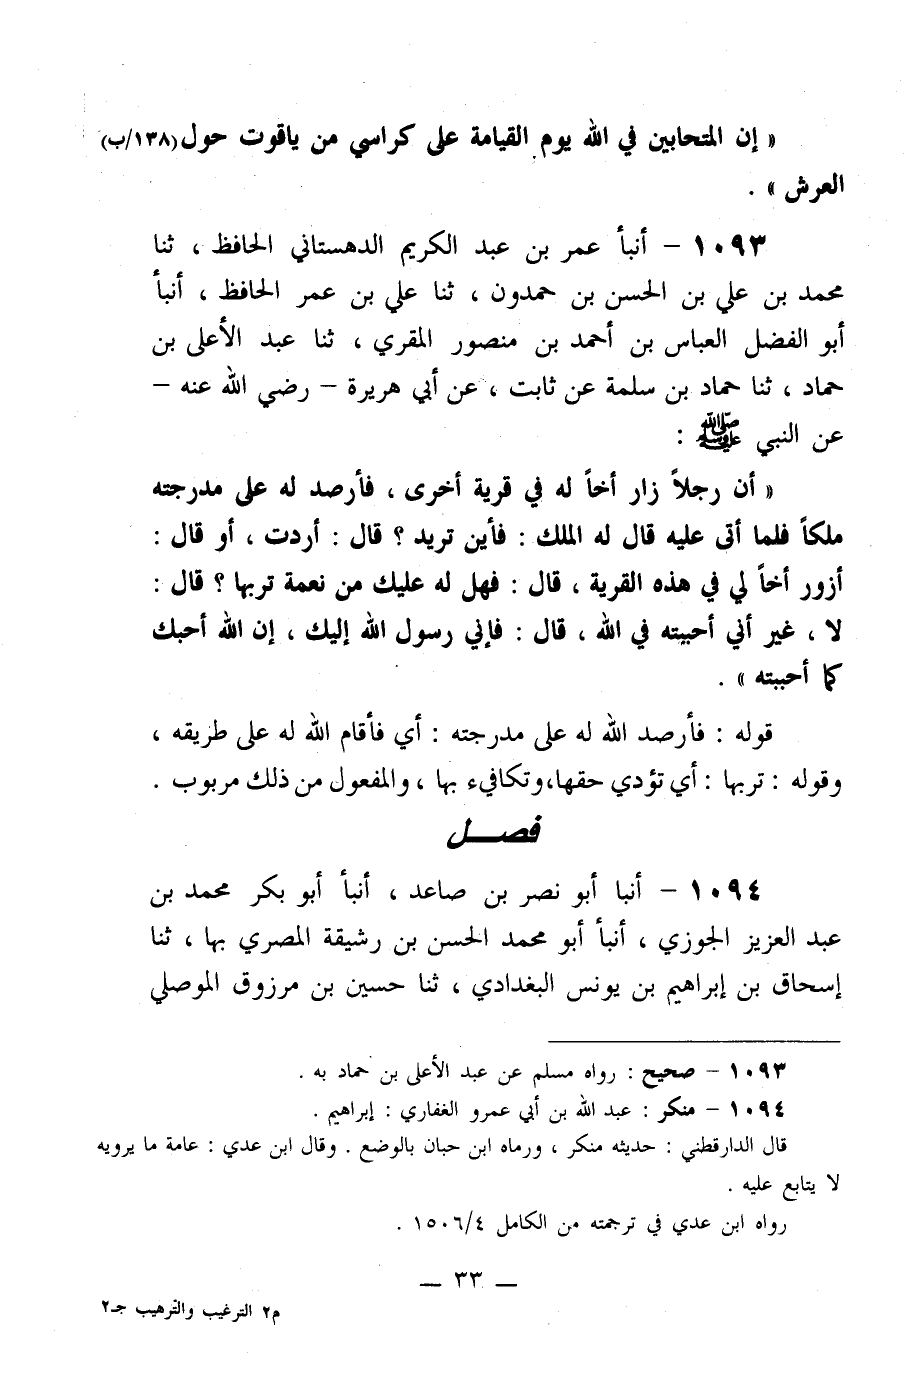 « إن المتحابين في الله يوم القيامة على كراسي من ياقوت حول (١٣٨/ب)
العرش » .
١٠٩٣ – أنبأ عمر بن عبد الكريم الدهستاني الحافظ ، ثنا
محمد بن علي بن الحسن بن حمدون ، ثنا علي بن عمر الحافظ ، أنبأ
أبو الفضل العباس بن أحمد بن منصور المقري ، ثنا عبد الأعلى بن
حماد ، ثنا حماد بن سلمة عن ثابت ، عن أبي هريرة – رضي الله عنه –
عن النبي ﷺ :
« أن رجلاً زار أخاً له في قرية أخرى ، فأرصد له على مدرجته
ملكاً فلما أتى عليه قال له الملك : فأين تريد ؟ قال : أردت ، أو قال :
أزور أخاً لي في هذه القرية ، قال : فهل له عليك من نعمة تربها ؟ قال :
لا ، غير أني أحببته في الله ، قال : فإني رسول الله إليك ، إن الله أحبك
كما أحببته » .
قوله : فأرصد الله له على مدرجته : أي فأقام الله له على طريقه ،
وقوله : تربها : أي تؤدي حقها، وتكافيء بها ، والمفعول من ذلك مربوب .
فصــل
١٠٩٤ – أنبا أبو نصر بن صاعد ، أنبأ أبو بكر محمد بن
عبد العزيز الجوزي ، أنبأ أبو محمد الحسن بن رشيقة المصري بها ، ثنا
إسحاق بن إبراهيم بن يونس البغدادي ، ثنا حسين بن مرزوق الموصلي
١٠٩٣ – صحيح : رواه مسلم عن عبد الأعلى بن حماد به .
١٠٩٤ – منكر : عبد الله بن أبي عمرو الغفاري : إبراهيم .
قال الدارقطني : حديثه منكر ، ورماه ابن حبان بالوضع . وقال ابن عدي : عامة ما يرويه
لا يتابع عليه .
رواه ابن عدي في ترجمته من الكامل ١٥٠٦/٤ .
— ٣٣ —
م٢ الترغيب والترهيب جـ٢